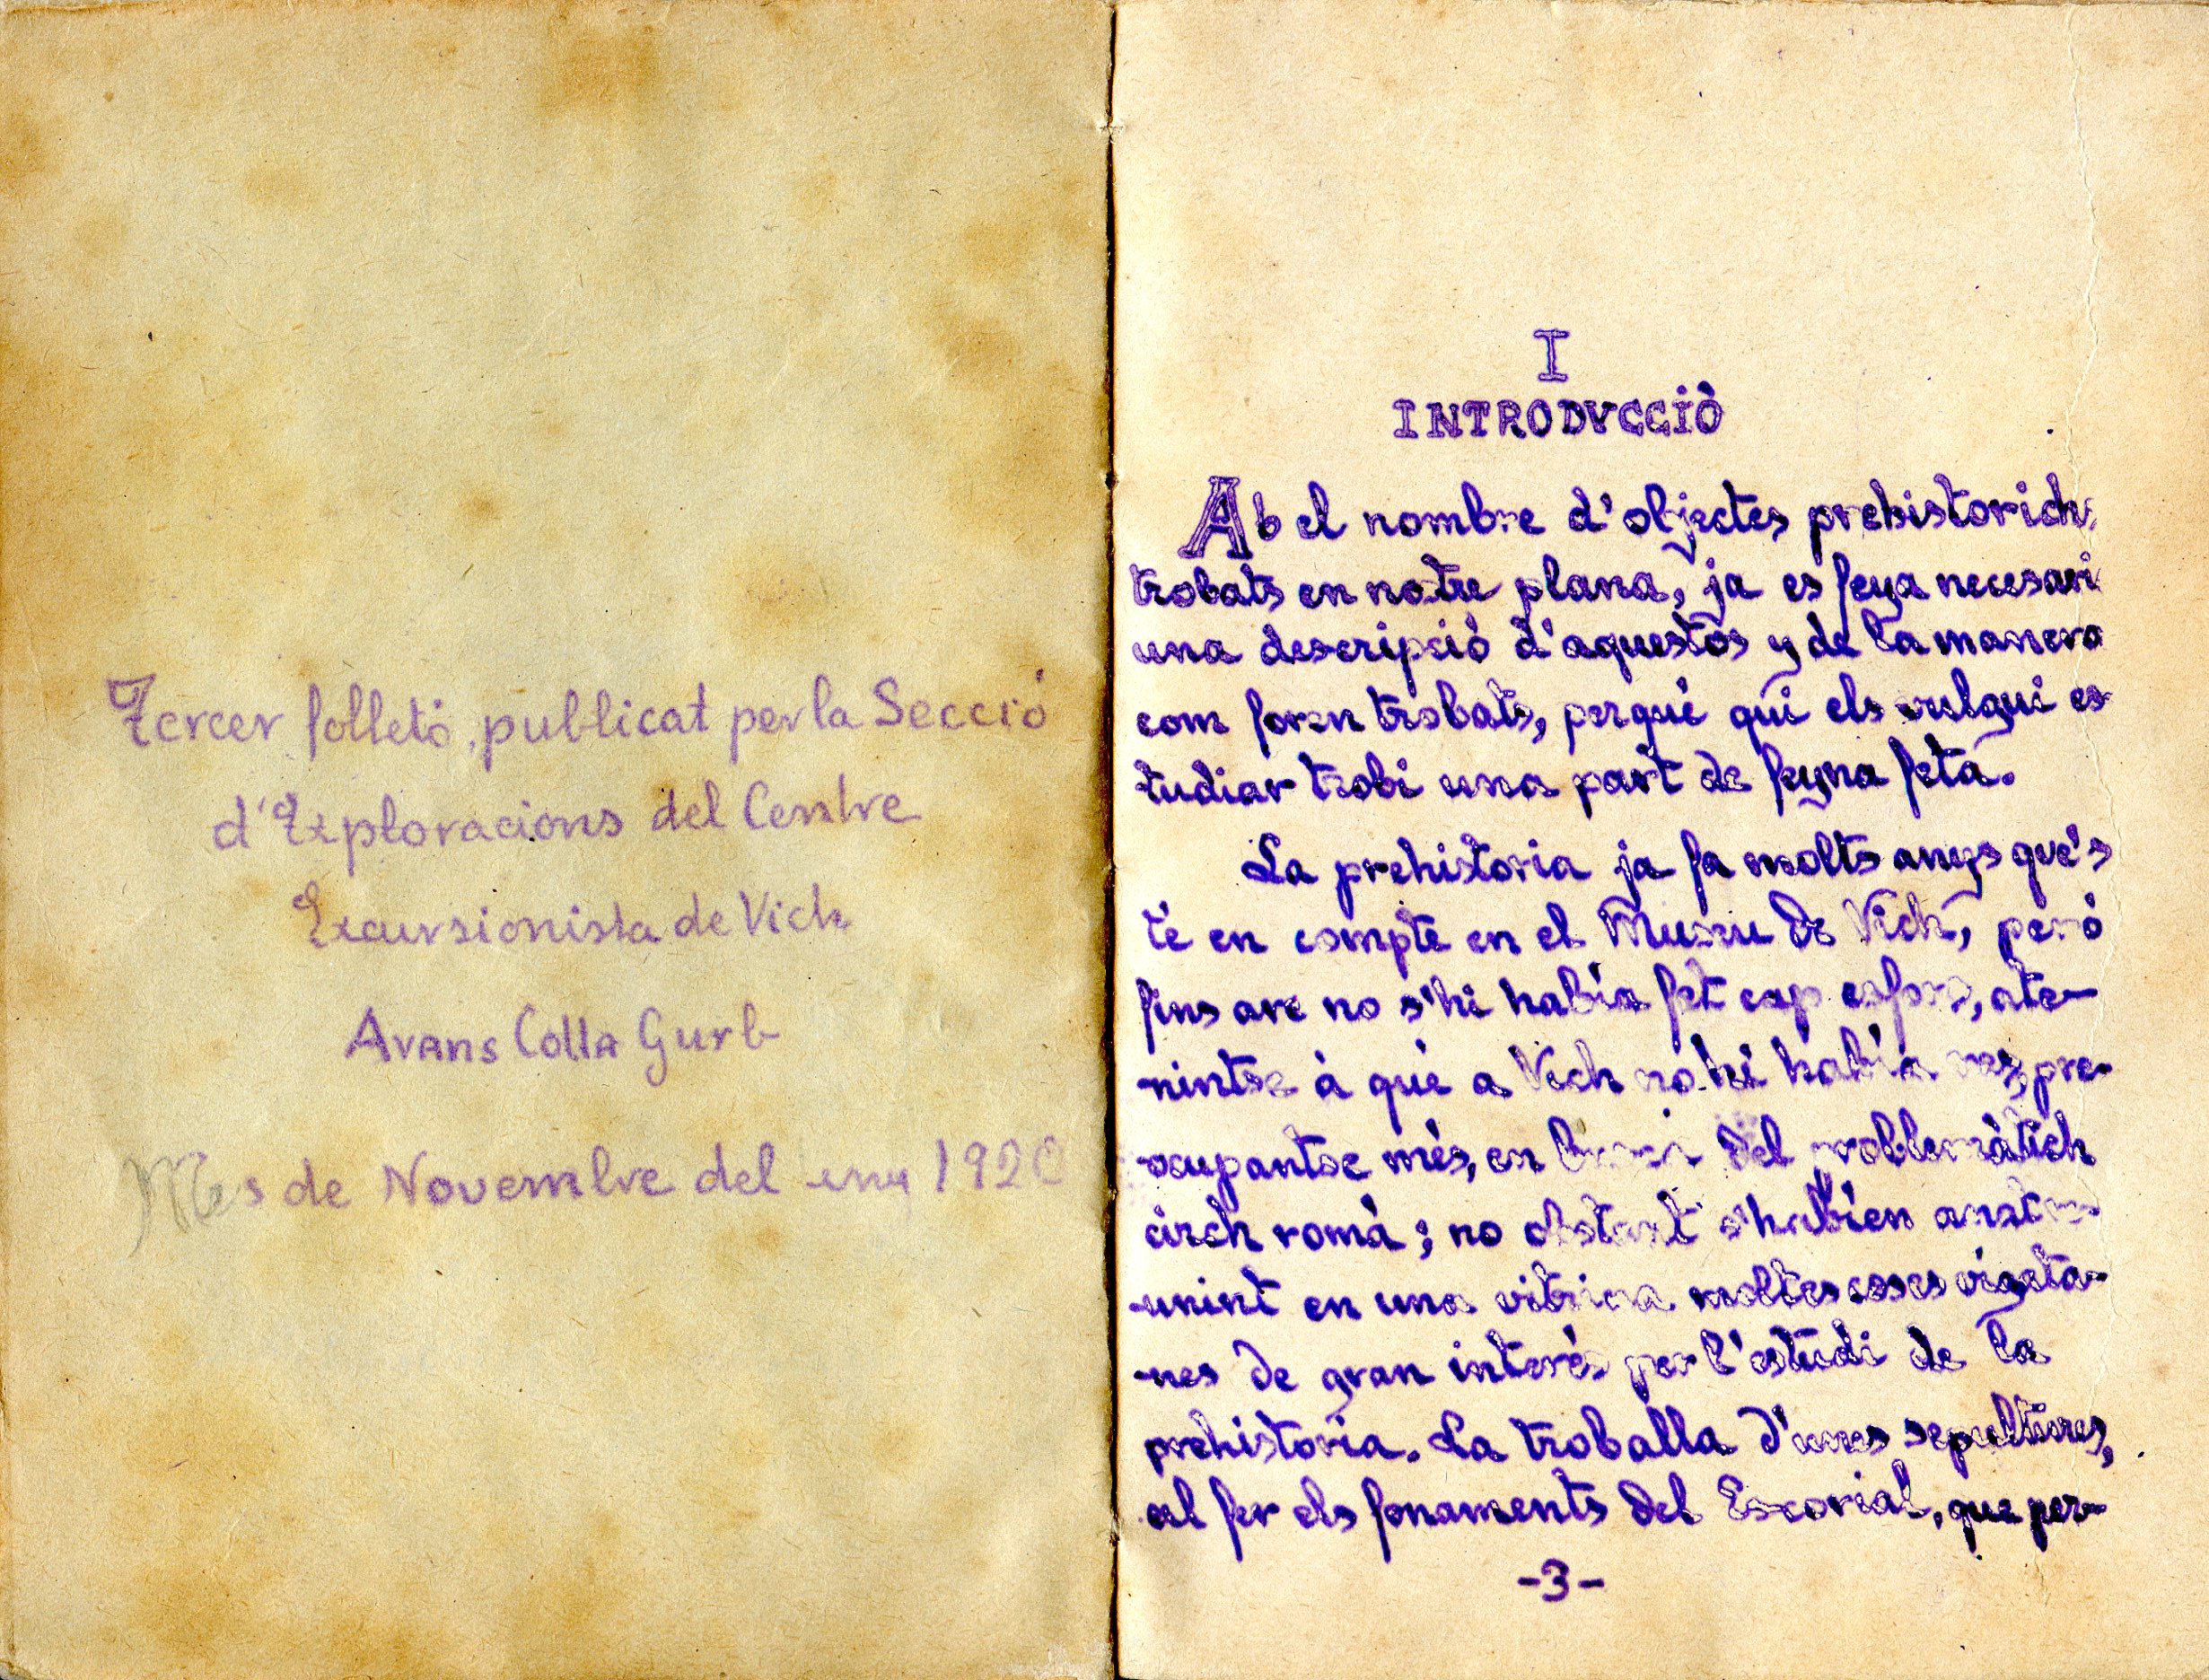 Tercer folletó, publicat per la Secció
d'Exploracions del Centre
Excursionista de Vich
Avans Colla Gurb
Mes de Novembre del any 192
I
INTRODVCCIÒ
Ab el nombre d'objectes prehistorichs
trobats en nostre plana, ja es feya necesari
una descripció d'aquestos y de la manera
com foren trobats, perqué qui els vulgui es
tudiar trobi una part de feyna feta.
La prehistoria ja fa molts anys qué's
té en compte en el Museu de Vich, peró
fins are no s'hi había fet cap esfors, ate-
nintse à qué a Vich no hi había res, pre-
ocupantse més, en del problemàtich
circh romà; no obstant s'habíen anat
unint en una vitrina moltes coses vigata-
nes de gran interés per l'estudi de la
prehistoria. La troballa d'unes sepultures,
al fer els fonaments del Escorial, que per-
-3-